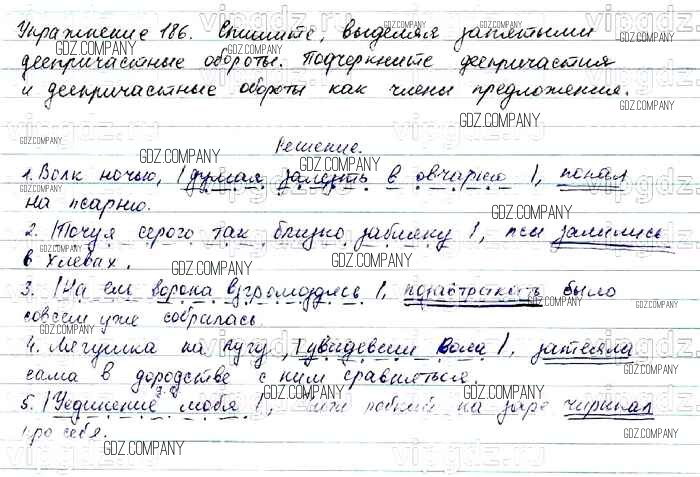 Упражнение 186. Спишите, выделяя запятыми
деепричастные обороты. Подчеркните деепричастия
и деепричастные обороты как члены предложения.
Решение.
1. Волк ночью, | думая залезть в овчарню |, попал
на псарню.
2. | Почуя серого так близко забияку |, псы залились
в хлевах.
3. | На ель ворона взгромоздясь |, позавтракать было
совсем уже собралась.
4. Лягушка на лугу, | увидевши вола |, затеяла
сама в дородстве с ним сравняться.
5. | Уединение любя |, чиж робкий на заре чирикал
про себя.
GDZ.COMPANY
vipgdz.ru